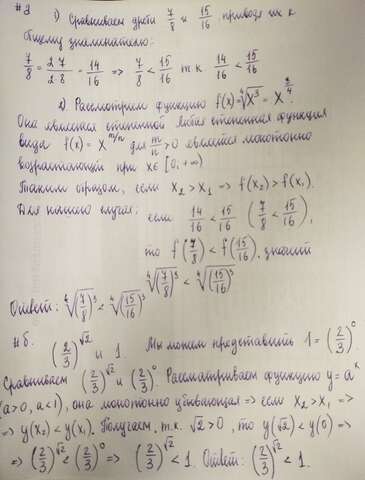 #2 1) Сравниваем дроби 7/8 и 15/16, приводя их к
общему знаменателю:
7/8 = 2·7/2·8 = 14/16 => 7/8 < 15/16 т.к. 14/16 < 15/16
2) Рассмотрим функцию f(x) = ⁴√x³ = x^(3/4).
Она является степенной любая степенная функция
вида f(x) = x^(m/n) для m/n > 0 является монотонно
возрастающей при x∈[0; +∞)
Таким образом, если x₂ > x₁ => f(x₂) > f(x₁).
Для нашего случая: если 14/16 < 15/16 (7/8 < 15/16),
то f(7/8) < f(15/16), значит
⁴√(7/8)³ < ⁴√(15/16)³
Ответ: ⁴√(7/8)³ < ⁴√(15/16)³
#б. (2/3)^√2 и 1. Мы можем представить 1 = (2/3)⁰.
Сравниваем (2/3)^√2 и (2/3)⁰. Рассматриваем функцию y = a^x
(a>0, a<1), она монотонно убывающая => если x₂ > x₁ =>
=> y(x₂) < y(x₁). Получаем, т.к. √2 > 0, то y(√2) < y(0) =>
=> (2/3)^√2 < (2/3)⁰ => (2/3)^√2 < 1. Ответ: (2/3)^√2 < 1.